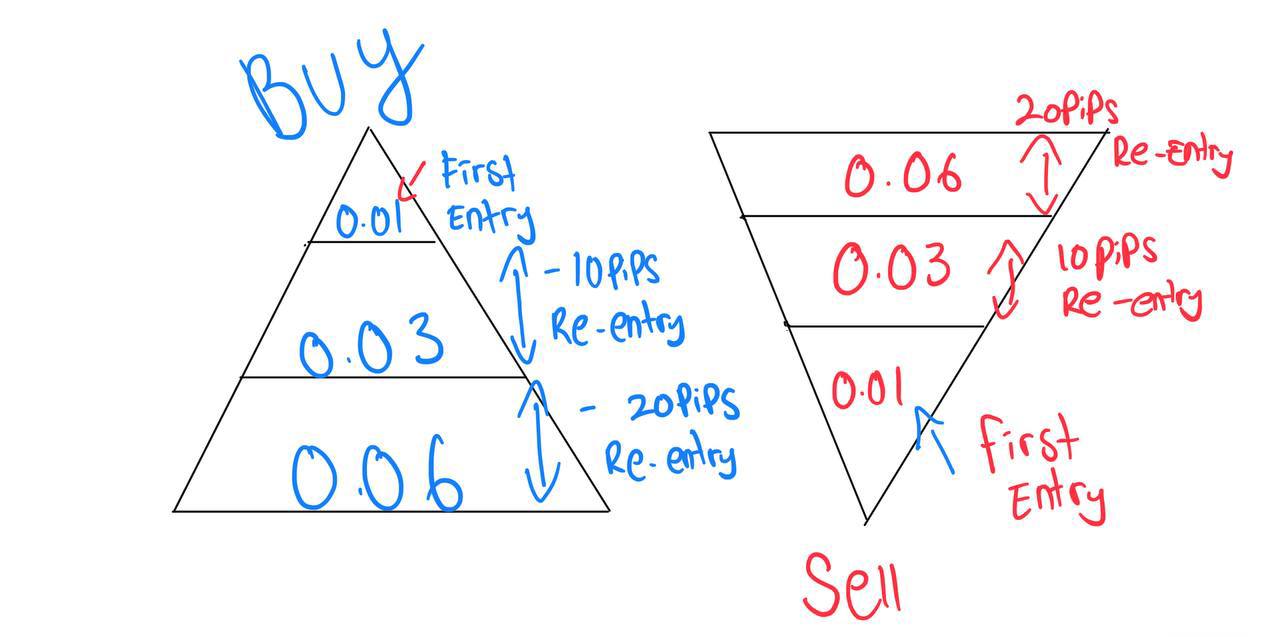 BUY
First
Entry
0.01
- 10PiPs
Re-entry
0.03
- 20PiPs
Re-entry
0.06
20PiPs
Re-Entry
0.06
10 PiPs
Re-entry
0.03
0.01
First
Entry
Sell